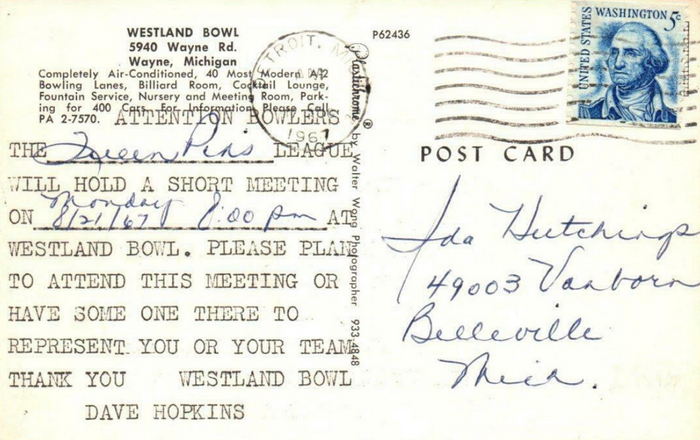 WESTLAND BOWL
5940 Wayne Rd.
Wayne, Michigan
Completely Air-Conditioned, 40 Most Modern
Bowling Lanes, Billiard Room, Cocktail Lounge,
Fountain Service, Nursery and Meeting Room, Park-
ing for 400 Cars. For Information Please Call
PA 2-7570.
ATTENTION BOWLERS
THE Queen Pins LEAGUE
WILL HOLD A SHORT MEETING
Monday
ON 8/21/67 8:00 pm AT
WESTLAND BOWL. PLEASE PLAN
TO ATTEND THIS MEETING OR
HAVE SOME ONE THERE TO
REPRESENT YOU OR YOUR TEAM
THANK YOU WESTLAND BOWL
DAVE HOPKINS
P62436
Plastichrome ® by Walter Wong Photographer 933-4848
DETROIT, MI
1967
UNITED STATES
WASHINGTON 5c
POST CARD
Ida Hutchings
49003 Vanborn
Belleville
Mich.